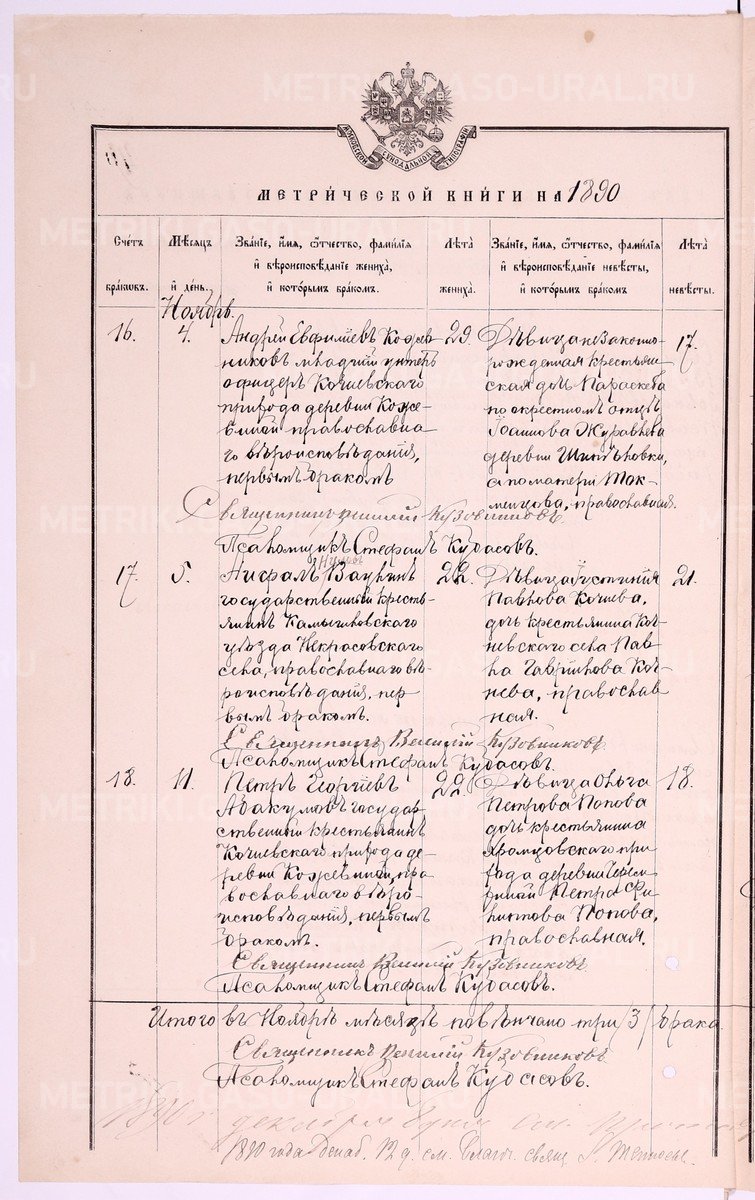 МОСКОВСКОЙ СИНОДАЛЬНОЙ ТИПОГРАФІИ
МЕТРИ́ЧЕСКОЙ КНИ́ГИ НА 1890
Сче́тъ бра́кωвъ.
Мѣ́сяцъ и҆ де́нь.
Зва́нїе, и҆́мя, ѻ҆́тчество, фами́лїя
и҆ вѣроисповѣ́данїе жениха̀,
и҆ кото́рымъ бра́комъ.
Лѣта̀ жениха̀.
Зва́нїе, и҆́мя, ѻ҆́тчество, фами́лїя
и҆ вѣроисповѣ́данїе невѣ́сты,
и҆ кото́рымъ бра́комъ
Лѣта̀ невѣ́сты.
Ноябрь.
16.
4.
Андрей Евфиміевъ Кожев-
никовъ младшій унтеръ
офицеръ Кочневскаго
прихода деревни Коже-
виной православна-
го вѣроисповѣданія,
первымъ бракомъ
29.
Дѣвица незаконно-
рожденная крестьян-
ская дочь Параскева
по крестномъ отцѣ
Іоаннова Журавлева
деревни
а по матери Ток-
менцова, православная.
17.
Священникъ Василій Кузовниковъ.
Псаломщикъ Стефанъ Кубасовъ.
17.
5.
Ваукинъ
государственный кресть-
янинъ Камышловскаго
уѣзда Некрасовскаго
села, православнаго вѣ-
роисповѣданія, пер-
вымъ бракомъ.
22.
Дѣвица Іустинія
Павлова Кочнева,
дочь крестьянина Коч-
невскаго села Пав-
ла Гаврилова Коч-
нева, православ-
ная.
21.
Священникъ Василій Кузовниковъ
Псаломщикъ Стефанъ Кубасовъ.
18.
11.
Петръ Георгіевъ
Абакумовъ государ-
ственный крестьянинъ
Кочневскаго прихода де-
ревни Кожевиной, пра-
вославнаго вѣро-
исповѣданія, первымъ
бракомъ.
22.
Дѣвица Ольга
Петрова Попова
дочь крестьянина
Храмцовскаго при-
хода деревни
Петра Фи-
липпова Попова,
православная.
18.
Священникъ Василій Кузовниковъ
Псаломщикъ Стефанъ Кубасовъ.
Итого въ Ноябрѣ мѣсяцѣ повѣнчано три /3/ брака.
Священникъ Василій Кузовниковъ
Псаломщикъ Стефанъ Кубасовъ.
1890 г декабря
1890 года Декаб. 12 д. см. Благоч. свящ
METRIKI.GASO-URAL.RU